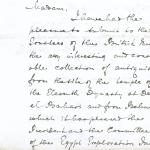 Madam,
I have had the
pleasure to submit to the
Trustees of the British Mus
the very interesting and
able collection of antiquit
from the site of the temple of
the Eleventh Dynasty at Deir
el-Bahari and from
which it has pleased the
President and the Committee
of the Egypt Exploration Fun